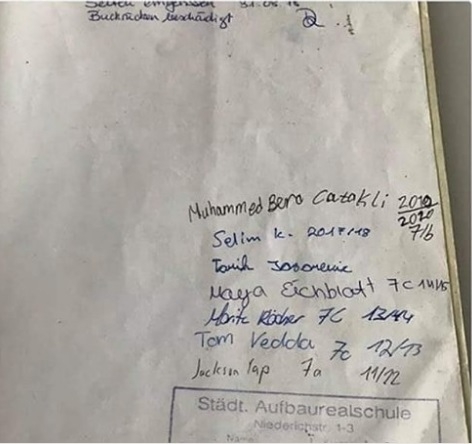 Seiten eingerissen 31.08.18
Buchrücken beschädigt
Muhammed Bera Cazakli 2019/2020 7/b
Selim K. 2017/18
Tarik
Maya Eichblatt 7c 14/15
Moritz 7C 13/14
Tom Vedda 7c 12/13
Jackson Yap 7a 11/12
Städt. Aufbaurealschule
Niederichstr. 1-3
Name